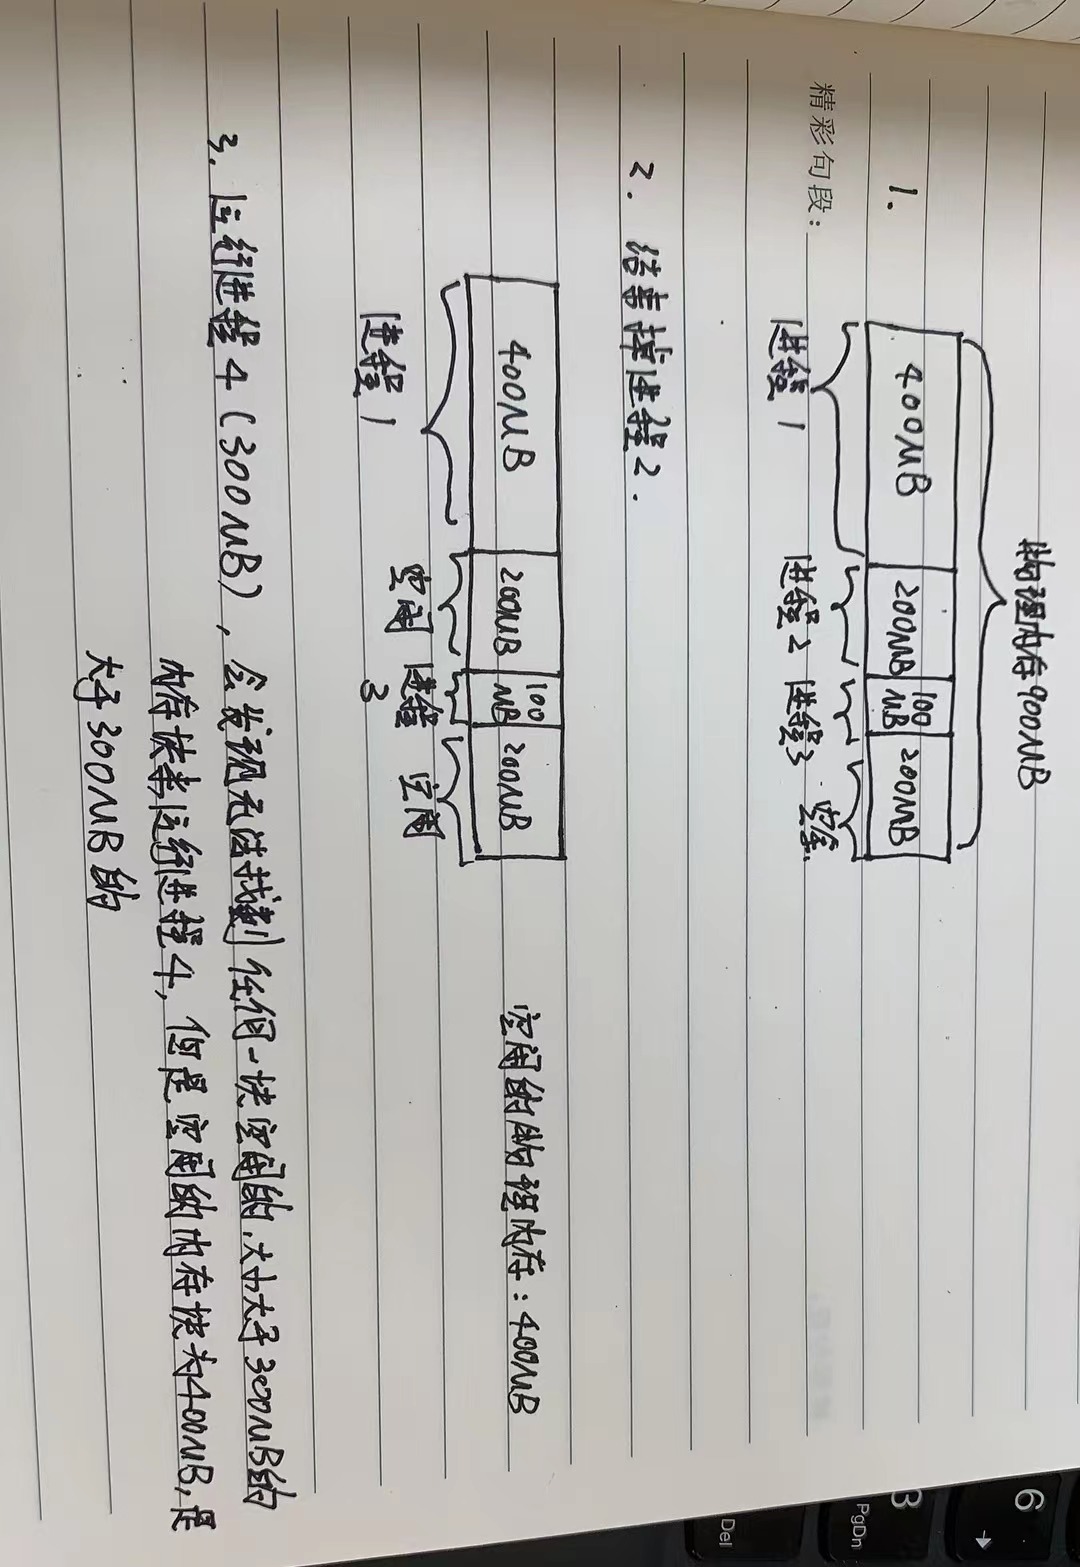 精彩句段:
物理内存900MB
1.
400MB 200MB 100MB 200MB
进程1 进程2 进程3 空余
2. 结束掉进程2.
400MB 200MB 100MB 200MB
空闲的物理内存:400MB
进程1 空闲 进程3 空闲
3. 运行进程4(300MB),会发现无法找到任何一块空闲的、大小大于300MB的
内存块来运行进程4,但是空闲的内存块为400MB,是
大于300MB的
6
3
PgDn
Del